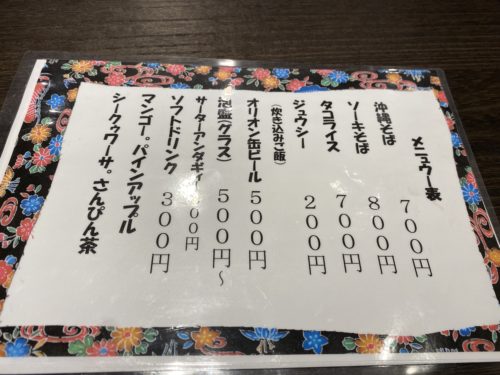 メニュウー表
沖縄そば 700円
ソーキそば 800円
タコライス 700円
ジューシー 200円
(炊き込みご飯)
オリオン缶ビール 500円
泡盛(グラス) 500円～
サーターアンダギィ 00円
ソフトドリンク 300円
マンゴー。パインアップル
シークゥワーサ。さんぴん茶